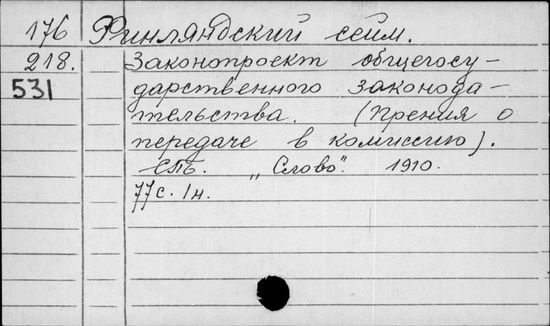 176 Финляндский сейм.
218. Законопроект общегосу-
531 дарственного законода-
тельства. (Прения о
передаче в комиссию).
СПб. „Слово". 1910.
77с. 1н.